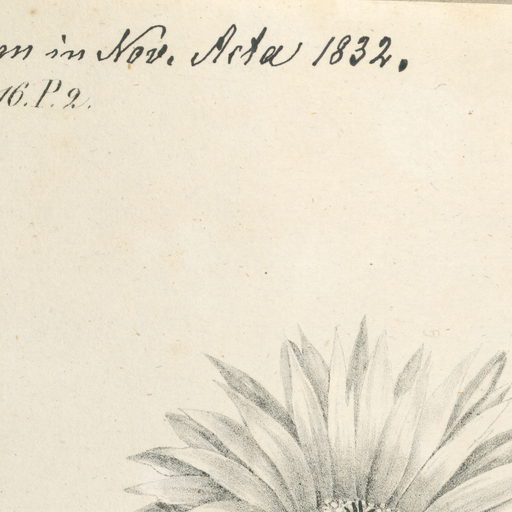 in Nov. Acta 1832.
16. P. 2.